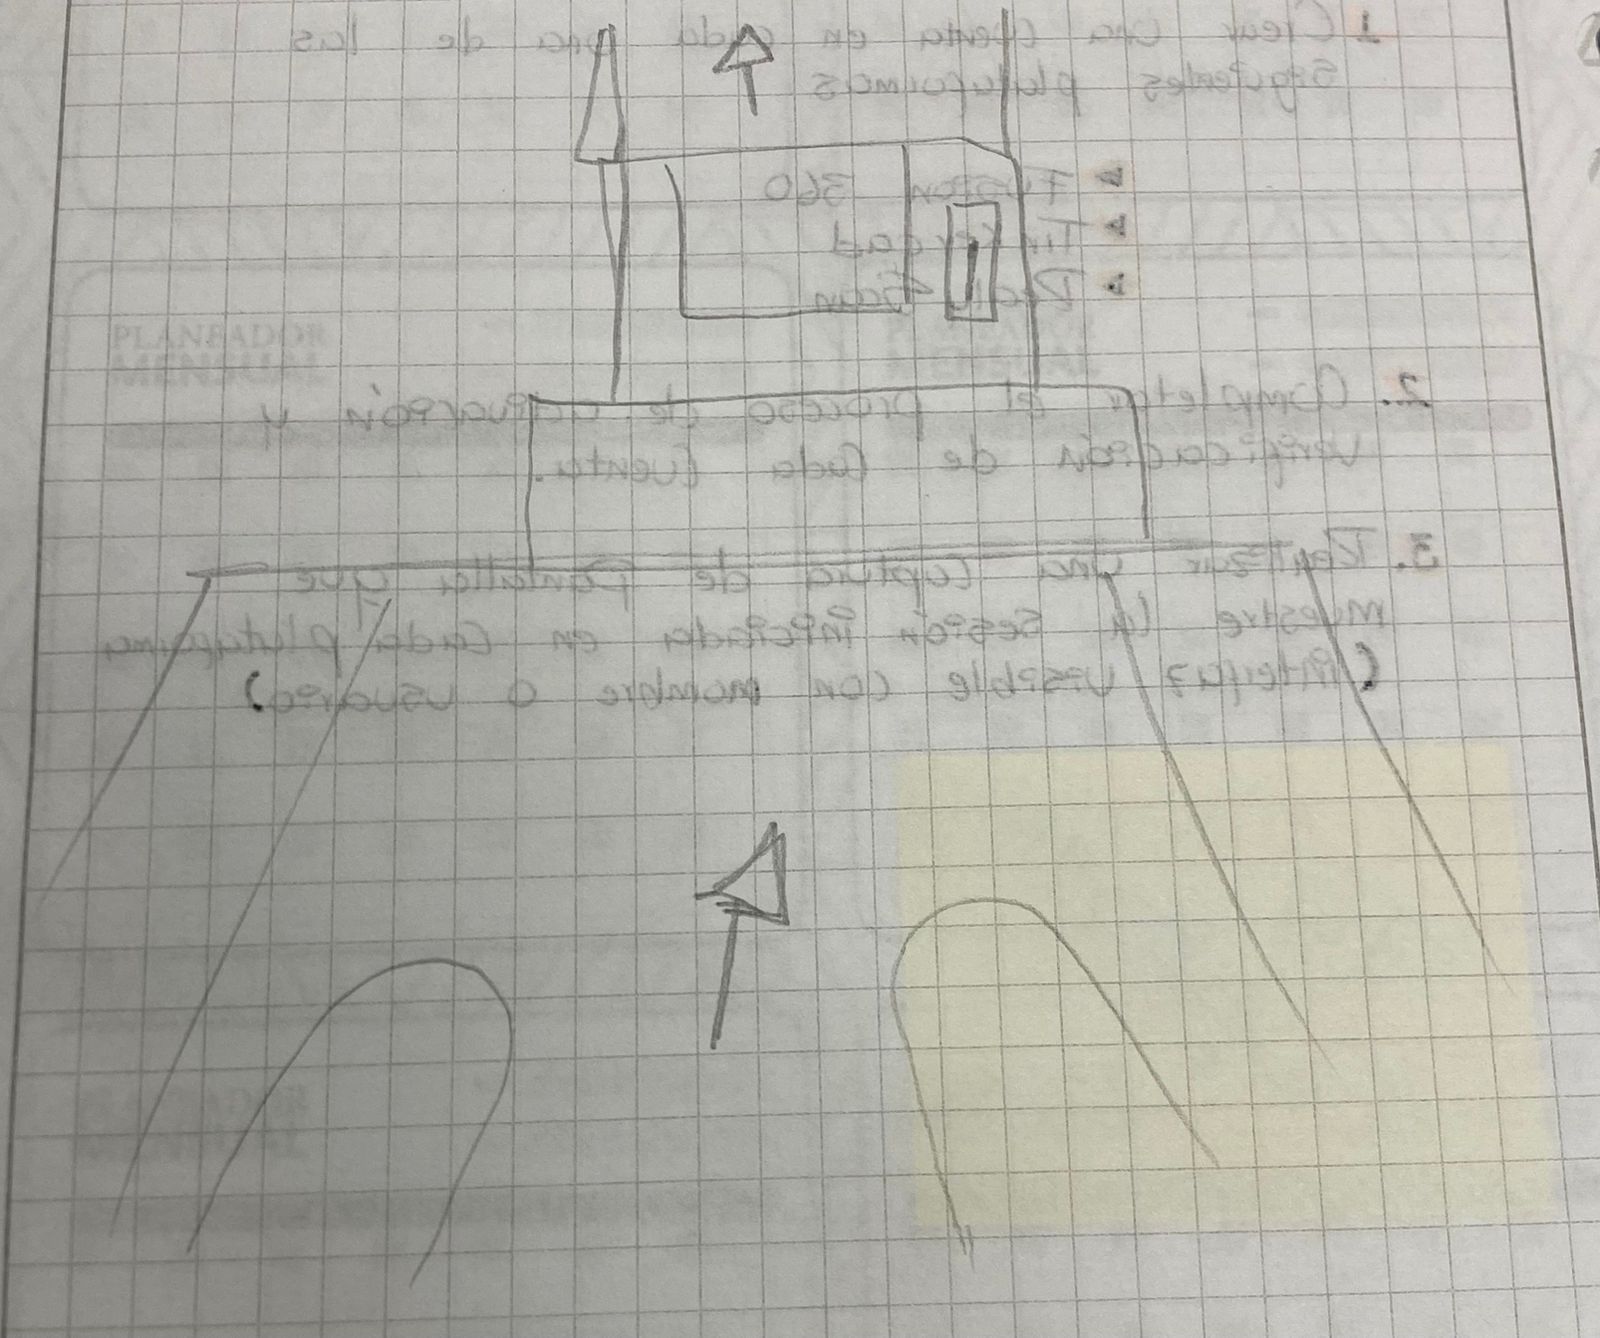 1. Crear una cuenta en cada una de las
siguientes plataformas
Fusion 360
Tinkercad
2. Completar el proceso de activación y
verificación de cada cuenta.
3. Realizar una captura de pantalla que
muestre la sesión iniciada en cada plataforma
(interfaz visible con nombre o usuario)
PLANEADOR
MENSUAL
PLANEADOR
MENSUAL